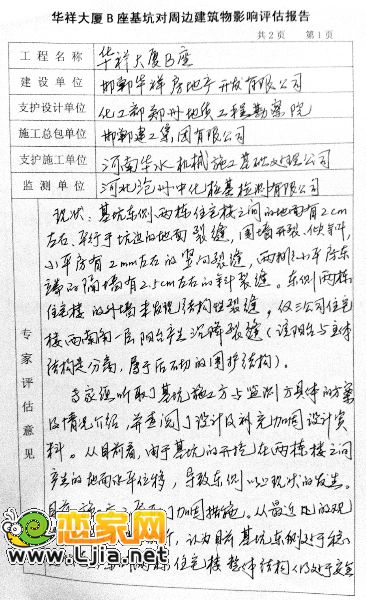 华祥大厦B座基坑对周边建筑物影响评估报告
共2页 第1页
工程名称 华祥大厦B座
建设单位 邯郸华祥房地产开发有限公司
支护设计单位 化工部郑州地质工程勘察院
施工总包单位 邯郸建工集团有限公司
支护施工单位 河南华水机械施工基础处理公司
监测单位 河北沧州中化桩基检测有限公司
专家评估意见
现状:基坑东侧两栋住宅楼之间的地面有2cm
左右平行于坑边的地面裂缝,围墙开裂、倾斜,
小平房有2mm左右的竖向裂缝,两排小平房东
端 隔墙有2.5cm左右的斜裂缝。东侧两栋
住宅楼的外墙未发现结构性裂缝,仅三公司住宅
楼西南角一层阳台产生沉降裂缝(该阳台与主体
结构是分离,属于后砌的围护结构)。
专家组听取了基坑施工方与监测方具体的方案
及情况介绍,并查阅了设计及补充加固设计资
料。从目前看,由于基坑的开挖在两栋楼之间
产生的地面水平位移,导致东侧 现状的发生。
目前 加固措施。从最近 的观
,认为目前基坑东侧处于稳
两栋住宅楼整体结构仍处于安全
恋家网
www.Ljia.net